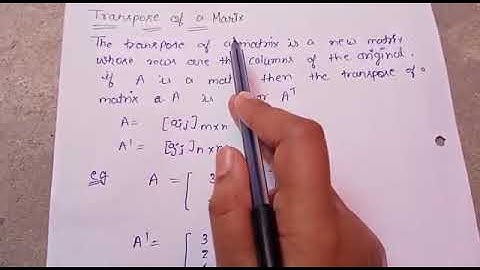 Transpose of a Marix
The transpose of a matrix is a new matrix
whose rows are the columns of the original.
If A is a mat then the transpose of a
matrix a A is or Aᵀ
A = [aij]m×n
A' = [aji]n×m
eg A = [
A' = [ 3
2